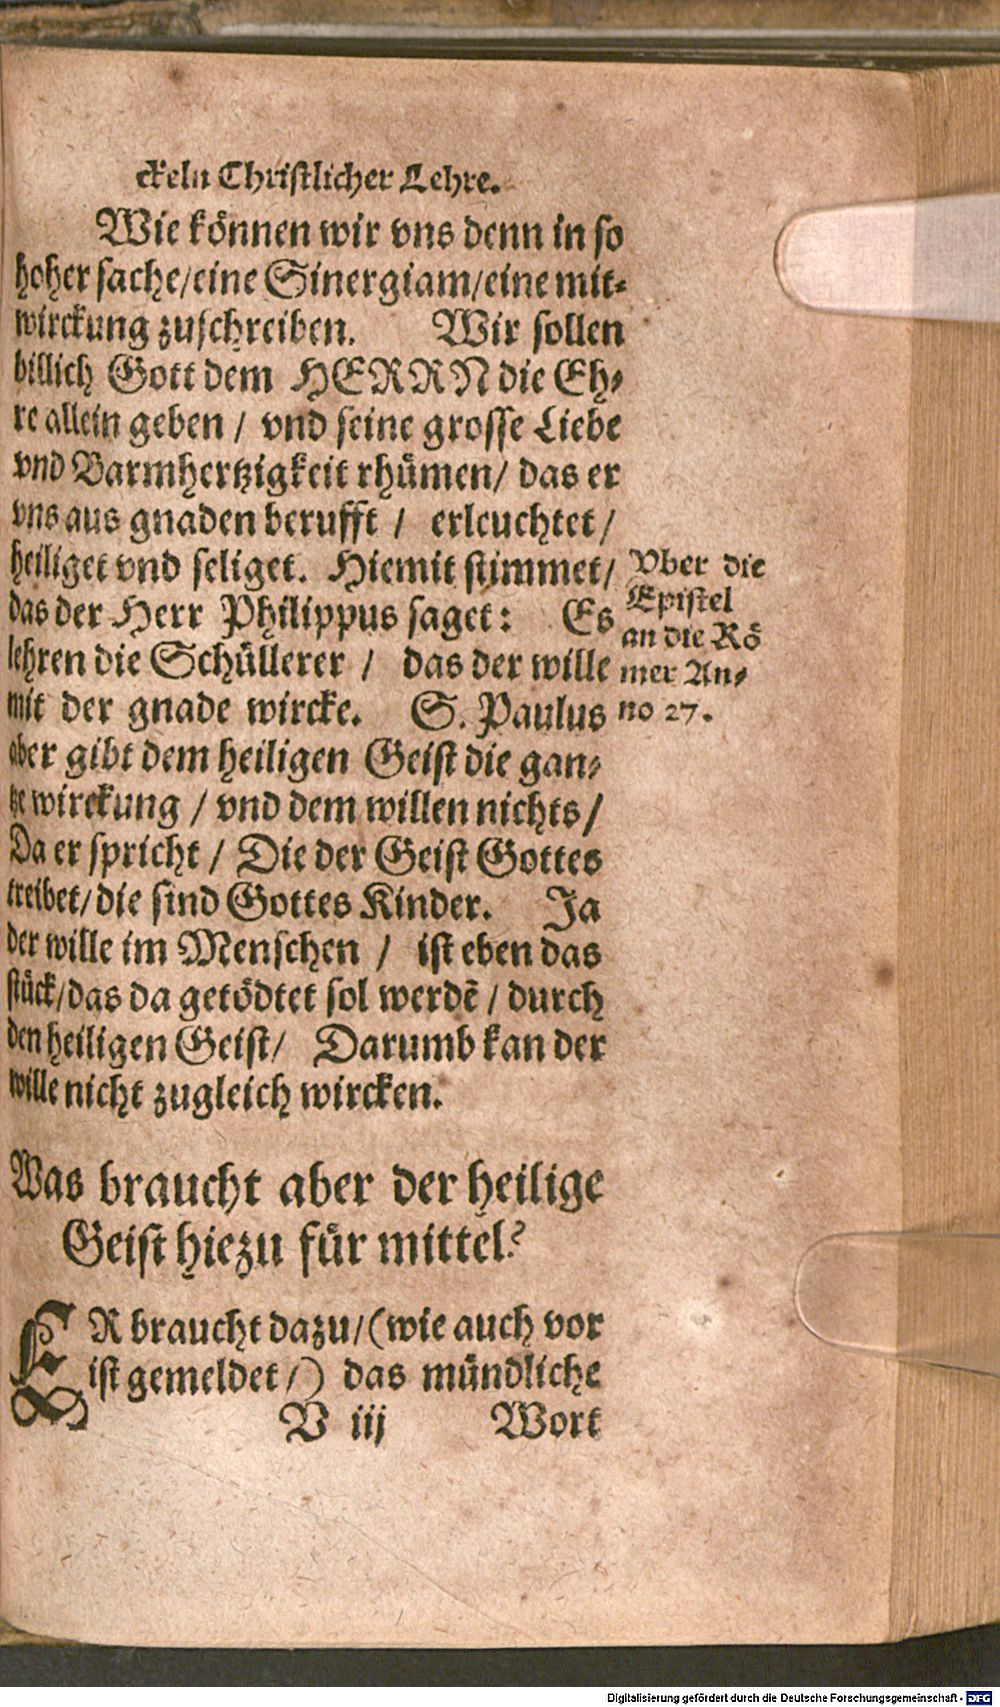 ckeln Christlicher Lehre.
Wie können wir vns denn in so
hoher sache/eine Sinergiam/eine mit-
wirckung zuschreiben. Wir sollen
billich Gott dem HERRN die Eh-
re allein geben / vnd seine grosse Liebe
vnd Barmhertzigkeit rhümen/ das er
vns aus gnaden berufft / erleuchtet/
heiliget vnd seliget. Hiemit stimmet/
das der Herr Philippus saget: Es
lehren die Schüllerer / das der wille
mit der gnade wircke. S. Paulus
aber gibt dem heiligen Geist die gan-
tze wirckung / vnd dem willen nichts/
Da er spricht / Die der Geist Gottes
treibet/die sind Gottes Kinder. Ja
der wille im Menschen / ist eben das
stück/das da getödtet sol werdē / durch
den heiligen Geist/ Darumb kan der
wille nicht zugleich wircken.
Vber die
Epistel
an die Rö
mer An-
no 27.
Was braucht aber der heilige
Geist hiezu für mittel?
ER braucht dazu/(wie auch vor
ist gemeldet/) das mündliche
V iij Wort
Digitalisierung gefördert durch die Deutsche Forschungsgemeinschaft - DFG